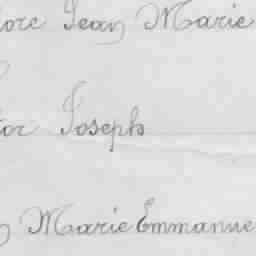 ore Jean Marie
tor Joseph
Marie Emmanue